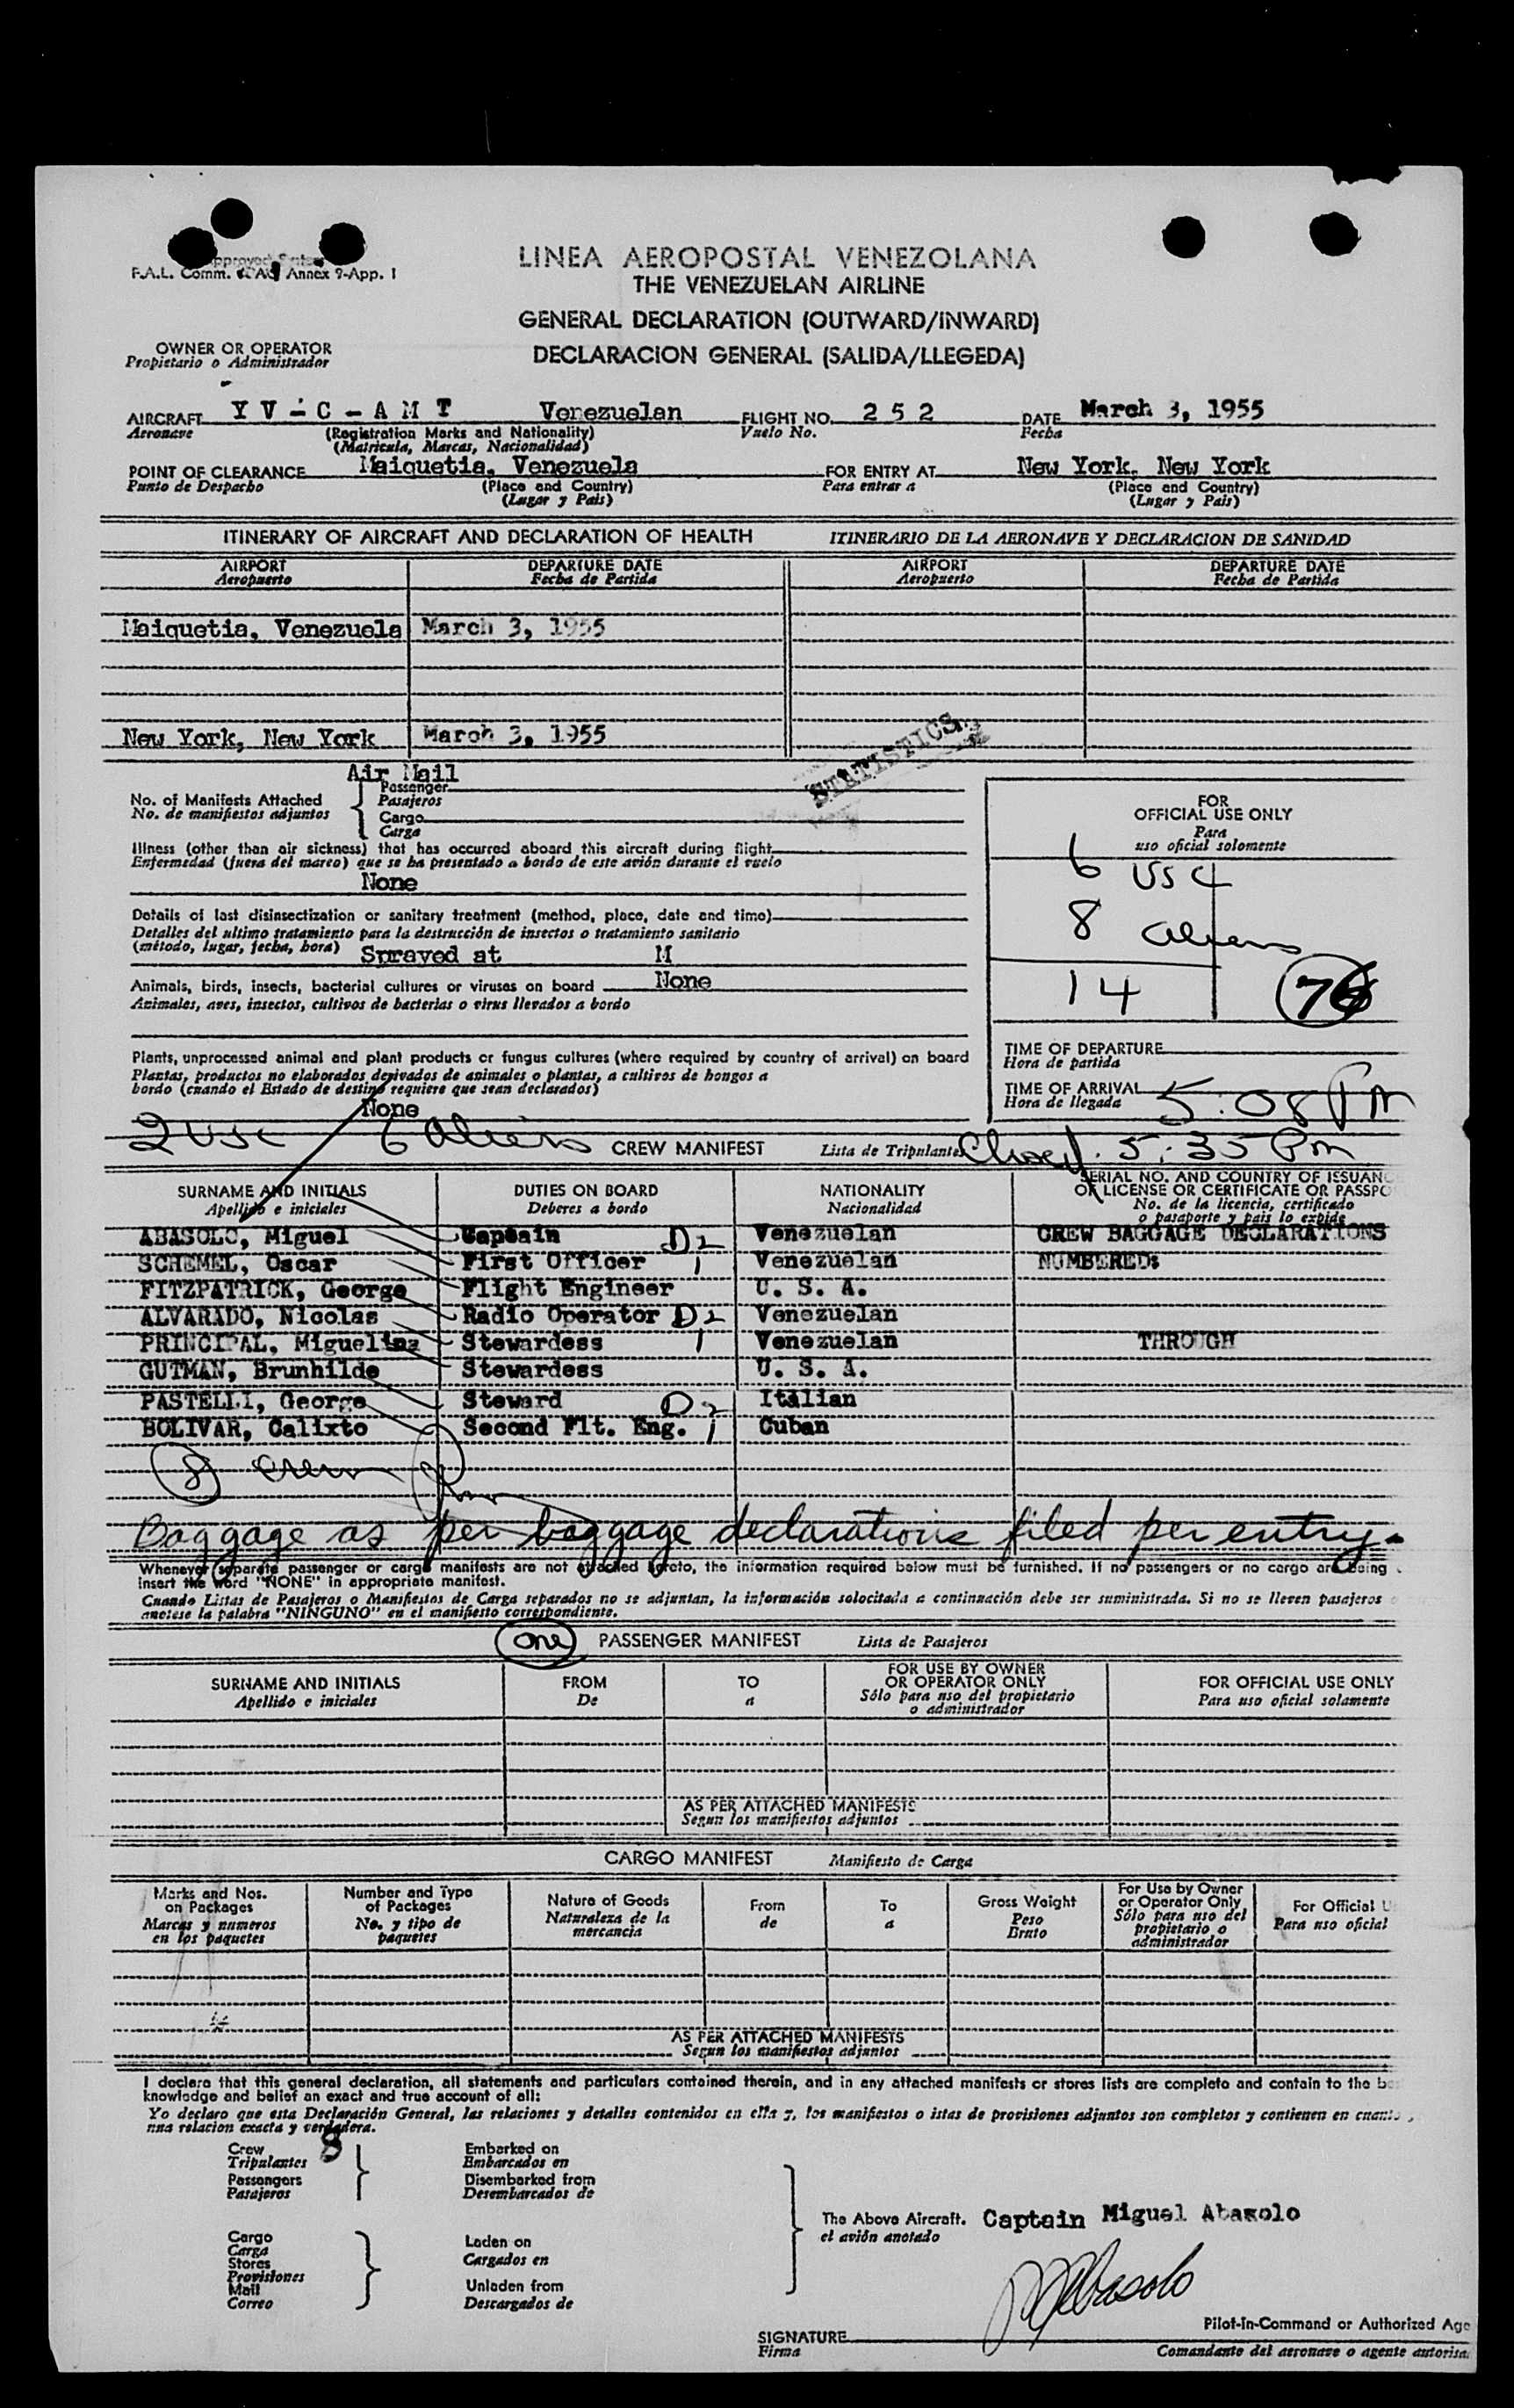 F.A.L. Comm. Annex 9-App. 1
LINEA AEROPOSTAL VENEZOLANA
THE VENEZUELAN AIRLINE
GENERAL DECLARATION (OUTWARD/INWARD)
OWNER OR OPERATOR
Propietario o Administrador
DECLARACION GENERAL (SALIDA/LLEGEDA)
AIRCRAFT Y V - C - A M T Venezuelan FLIGHT NO. 2 5 2 DATE March 3, 1955
Aeronave (Registration Marks and Nationality) Vuelo No. Fecha
(Matricula, Marcas, Nacionalidad)
POINT OF CLEARANCE Maiquetia, Venezuela FOR ENTRY AT New York, New York
Punto de Despacho (Place and Country) Para entrar a (Place and Country)
(Lugar y Pais) (Lugar y Pais)
ITINERARY OF AIRCRAFT AND DECLARATION OF HEALTH ITINERARIO DE LA AERONAVE Y DECLARACION DE SANIDAD
AIRPORT DEPARTURE DATE AIRPORT DEPARTURE DATE
Aeropuerto Fecha de Partida Aeropuerto Fecha de Partida
Maiquetia, Venezuela March 3, 1955
New York, New York March 3, 1955
STATISTICS
Air Mail
No. of Manifests Attached Passenger
No. de manifiestos adjuntos Pasajeros
Cargo
Carga
FOR
OFFICIAL USE ONLY
Para
uso oficial solomente
Illness (other than air sickness) that has occurred aboard this aircraft during flight
Enfermedad (fuera del mareo) que se ha presentado a bordo de este avión durante el vuelo
None
6 USC
8 aliens
14 76
Details of last disinsectization or sanitary treatment (method, place, date and time)
Detalles del ultimo tratamiento para la destrucción de insectos o tratamiento sanitario
(método, lugar, fecha, hora) Sprayed at M
Animals, birds, insects, bacterial cultures or viruses on board None
Animales, aves, insectos, cultivos de bacterias o virus llevados a bordo
Plants, unprocessed animal and plant products or fungus cultures (where required by country of arrival) on board
Plantas, productos no elaborados derivados de animales o plantas, a cultivos de hongos a
bordo (cuando el Estado de destino requiere que sean declarados)
None
TIME OF DEPARTURE
Hora de partida
TIME OF ARRIVAL 5:08 PM
Hora de llegada
2 USC 6 Aliens CREW MANIFEST Lista de Tripulantes Closed. 5:35 Pm
SURNAME AND INITIALS DUTIES ON BOARD NATIONALITY SERIAL NO. AND COUNTRY OF ISSUANC
Apellido e iniciales Deberes a bordo Nacionalidad OF LICENSE OR CERTIFICATE OR PASSPO
No. de la licencia, certificado
o pasaporte y pais lo expide
ABASOLO, Miguel Captain D2 Venezuelan CREW BAGGAGE DECLARATIONS
SCHEMEL, Oscar First Officer 1 Venezuelan NUMBERED:
FITZPATRICK, George Flight Engineer U. S. A.
ALVARADO, Nicolas Radio Operator D2 Venezuelan
PRINCIPAL, Miguelina Stewardess 1 Venezuelan THROUGH
GUTMAN, Brunhilde Stewardess U. S. A.
PASTELLI, George Steward D2 Italian
BOLIVAR, Calixto Second Flt. Eng. 1 Cuban
8 crew
Baggage as per baggage declarations filed per entry.
Whenever separate passenger or cargo manifests are not attached hereto, the information required below must be furnished. If no passengers or no cargo are being
insert the word "NONE" in appropriate manifest.
Cuando Listas de Pasajeros o Manifiestos de Carga separados no se adjuntan, la información solocitada a continuación debe ser suministrada. Si no se lleven pasajeros o
anotese la palabra "NINGUNO" en el manifiesto correspondiente.
One PASSENGER MANIFEST Lista de Pasajeros
SURNAME AND INITIALS FROM TO FOR USE BY OWNER OR OPERATOR ONLY FOR OFFICIAL USE ONLY
Apellido e iniciales De a Sólo para uso del propietario o administrador Para uso oficial solamente
AS PER ATTACHED MANIFESTS
Segun los manifiestos adjuntos
CARGO MANIFEST Manifiesto de Carga
Marks and Nos. on Packages Number and Type of Packages Nature of Goods From To Gross Weight For Use by Owner or Operator Only For Official U
Marcas y numeros en los paquetes No. y tipo de paquetes Naturaleza de la mercancia de a Peso Bruto Sólo para uso del propietario o administrador Para uso oficial
AS PER ATTACHED MANIFESTS
Segun los manifiestos adjuntos
I declare that this general declaration, all statements and particulars contained therein, and in any attached manifests or stores lists are complete and contain to the be
knowledge and belief an exact and true account of all:
Yo declaro que esta Declaración General, las relaciones y detalles contenidos en ella y, los manifiestos o istas de provisiones adjuntos son completos y contienen en cuanto
una relacion exacta y verdadera.
Crew 8 Embarked on
Tripulantes Embarcados en
Passengers Disembarked from
Pasajeros Desembarcados de
The Above Aircraft. Captain Miguel Abasolo
el avión anotado
Cargo Laden on
Carga Cargados en
Stores
Provisiones
Mail Unladen from
Correo Descargados de
M Abasolo
Pilot-in-Command or Authorized Age
SIGNATURE
Firma Comandante del aeronave o agente autoriza